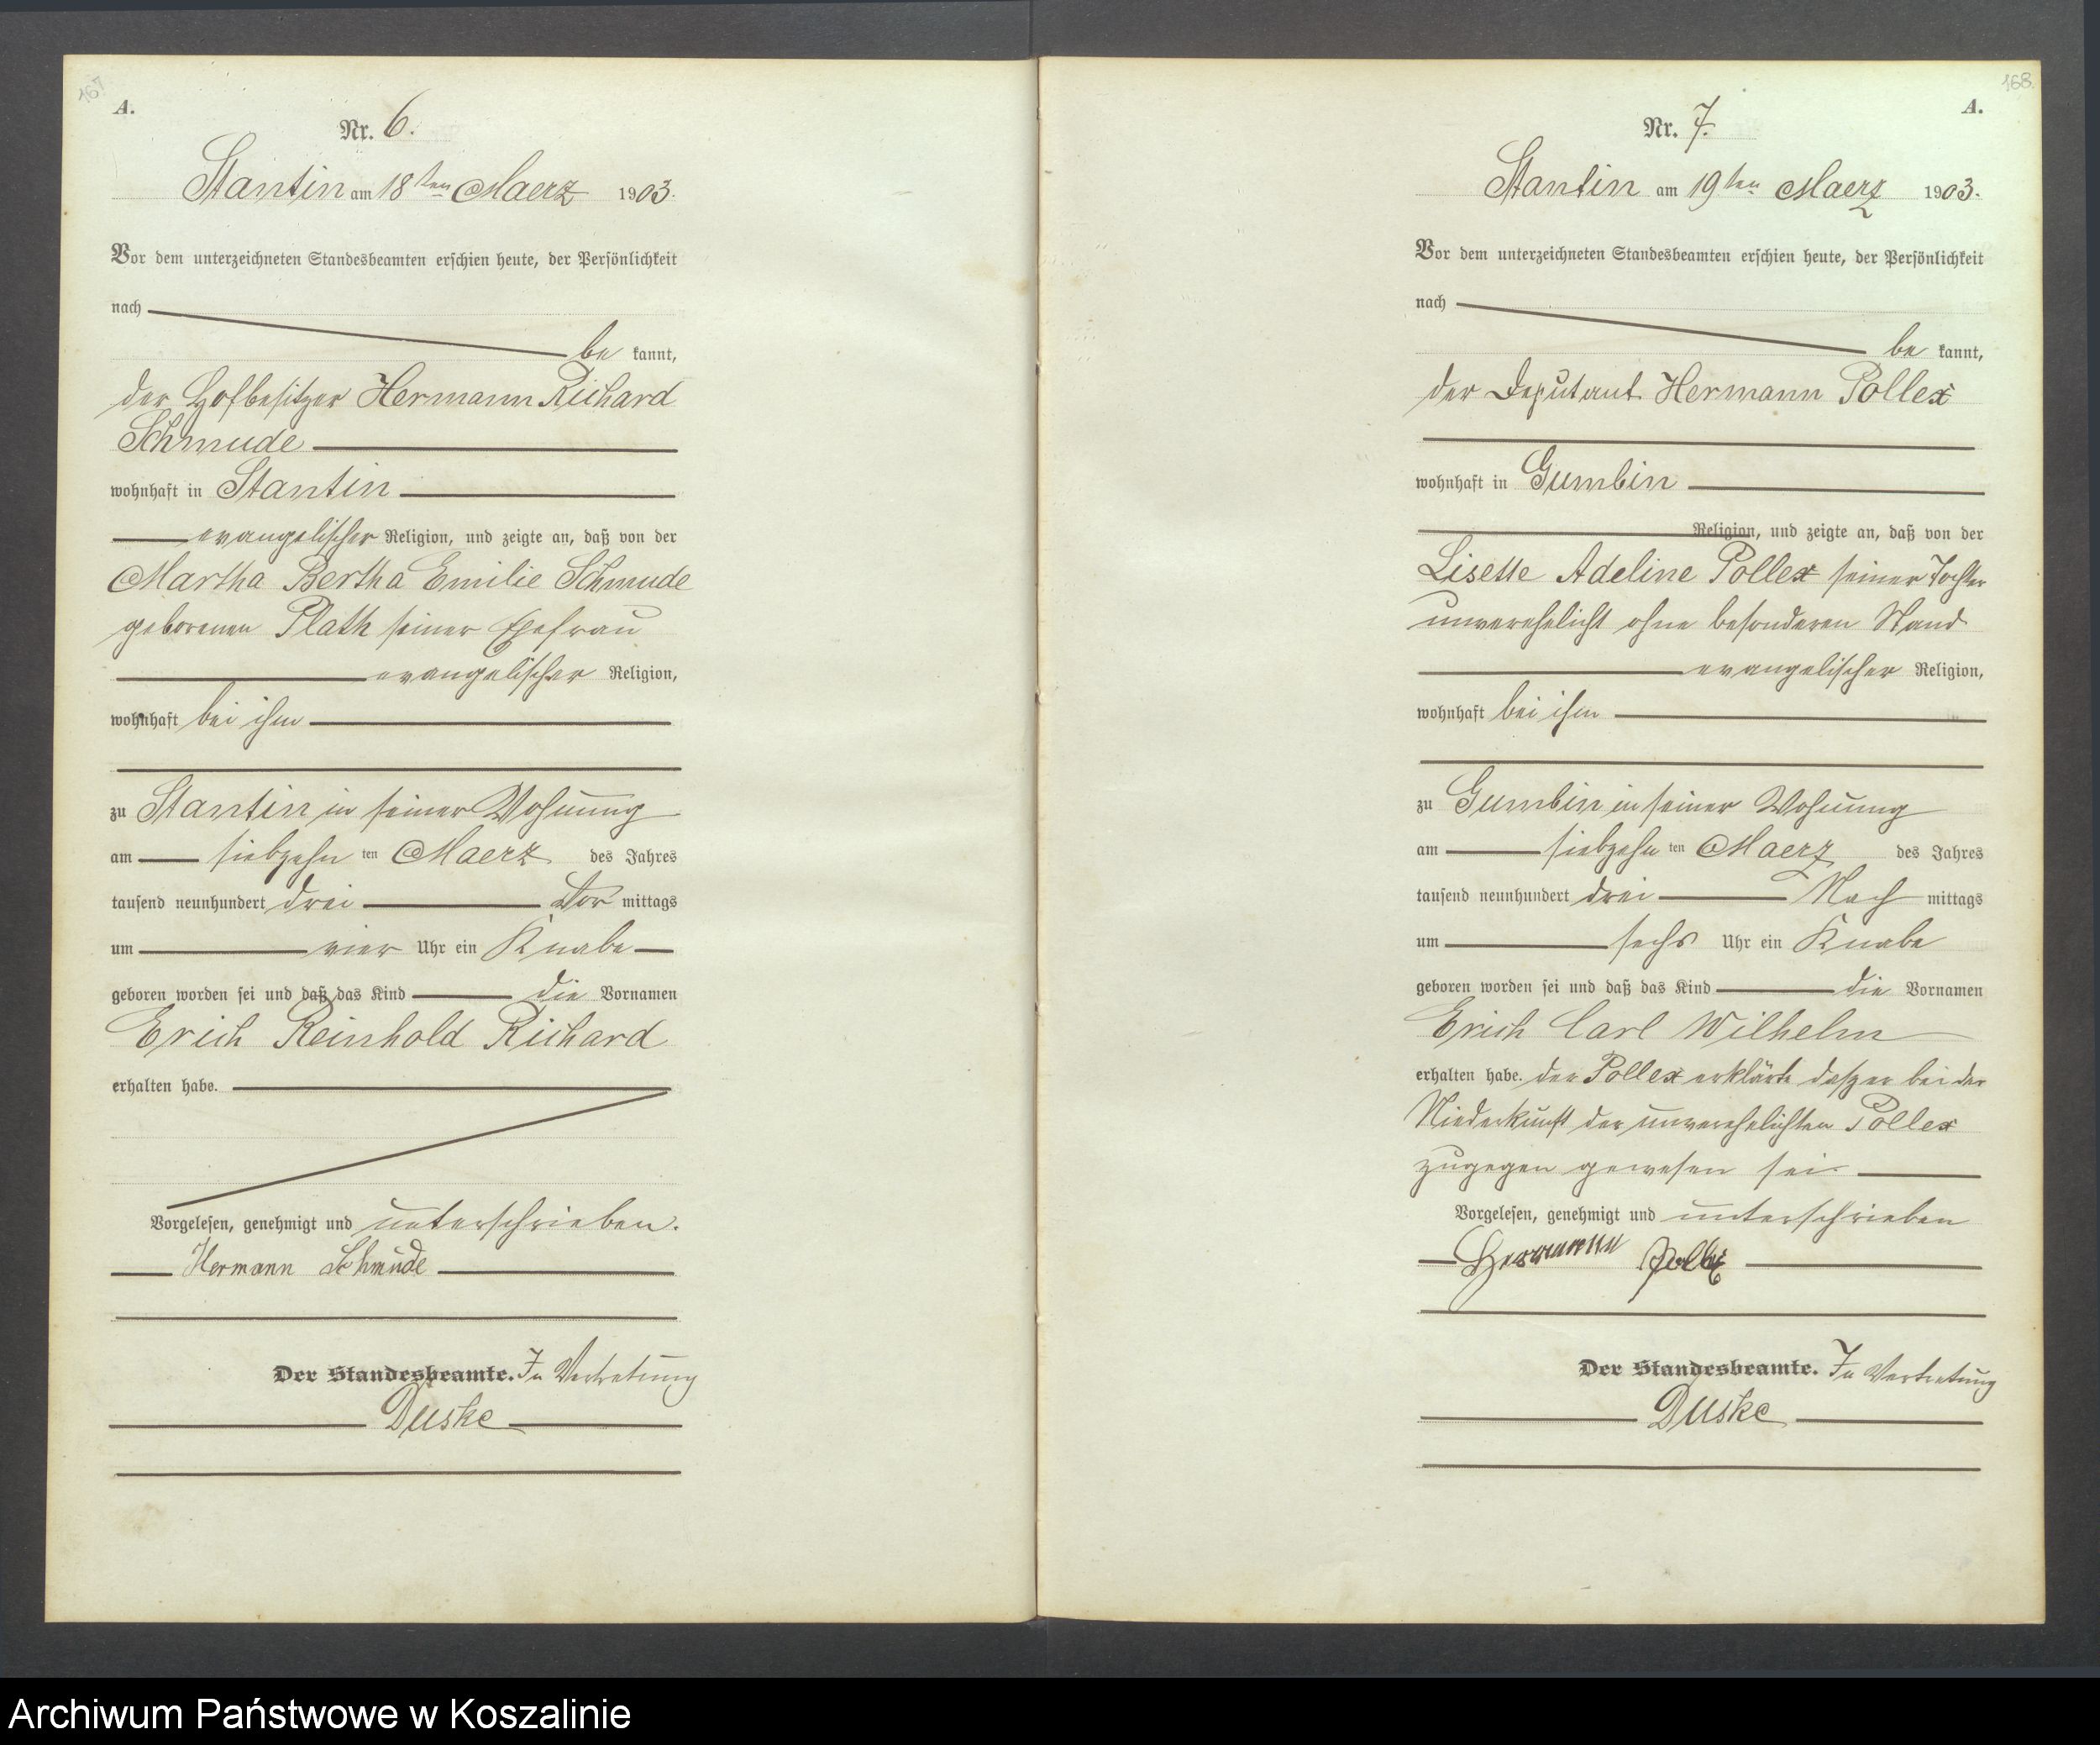 167
A.
Nr. 6.
Stantin am 18ten Maerz 1903.
Vor dem unterzeichneten Standesbeamten erschien heute, der Persönlichkeit
nach
be kannt,
der Hofbesitzer Hermann Richard
Schmude
wohnhaft in Stantin
evangelischer Religion, und zeigte an, daß von der
Martha Bertha Emilie Schmude
geborenen Plath seiner Ehefrau
evangelischer Religion,
wohnhaft bei ihm
zu Stantin in seiner Wohnung
am siebzehn ten Maerz des Jahres
tausend neunhundert drei Vor mittags
um vier Uhr ein Knabe
geboren worden sei und daß das Kind die Vornamen
Erich Reinhold Richard
erhalten habe.
Vorgelesen, genehmigt und unterschrieben.
Hermann Schmude
Der Standesbeamte. In Vertretung
Duske
168.
A.
Nr. 7.
Stantin am 19ten Maerz 1903.
Vor dem unterzeichneten Standesbeamten erschien heute, der Persönlichkeit
nach
be kannt,
der Deputant Hermann Pollex
wohnhaft in Gumbin
Religion, und zeigte an, daß von der
Lisette Adeline Pollex seiner Tochter
unverehelicht ohne besonderen Stand
evangelischer Religion,
wohnhaft bei ihm
zu Gumbin in seiner Wohnung
am siebzehn ten Maerz des Jahres
tausend neunhundert drei Nach mittags
um sechs Uhr ein Knabe
geboren worden sei und daß das Kind die Vornamen
Erich Carl Wilhelm
erhalten habe. der Pollex erklärte daß er bei der
Niederkunft der unverehelichten Pollex
zugegen gewesen sei
Vorgelesen, genehmigt und unterschrieben
Hermann Pollex
Der Standesbeamte. In Vertretung
Duske
Archiwum Państwowe w Koszalinie